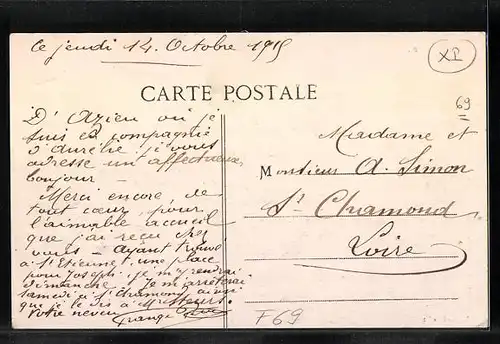 Ce jeudi 14 Octobre 1915
XI
CARTE POSTALE
69
D'Azieu où je
suis en compagnie
d'Aurélie je vous
adresse un affectueux
bonjour –
Merci encore de
tout cœur pour
l'aimable accueil
que j'ai reçu chez
vous – ayant trouvé
à St Etienne une place
pour Joseph. je m'y rendrai
dimanche. Je m'arrêterai
samedi à St Chamond ainsi
que je le dis à
Votre neveu
Madame et
Monsieur A. Simon
St Chamond
Loire
F69